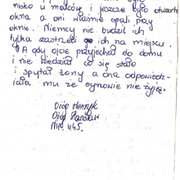 nisko u małców i jeszcze było otwarte
okna a oni właśnie spali przy
oknie. Niemcy nie budził ich
tylko zastrzelił ich na miejscu.
A gdy ojciec przyjechał do domu
i nie wiedział co się stało
i spytał żony a ona odpowiedz-
iała mu że synowie nie żyją.
Ożóg Henryk
Ożóg